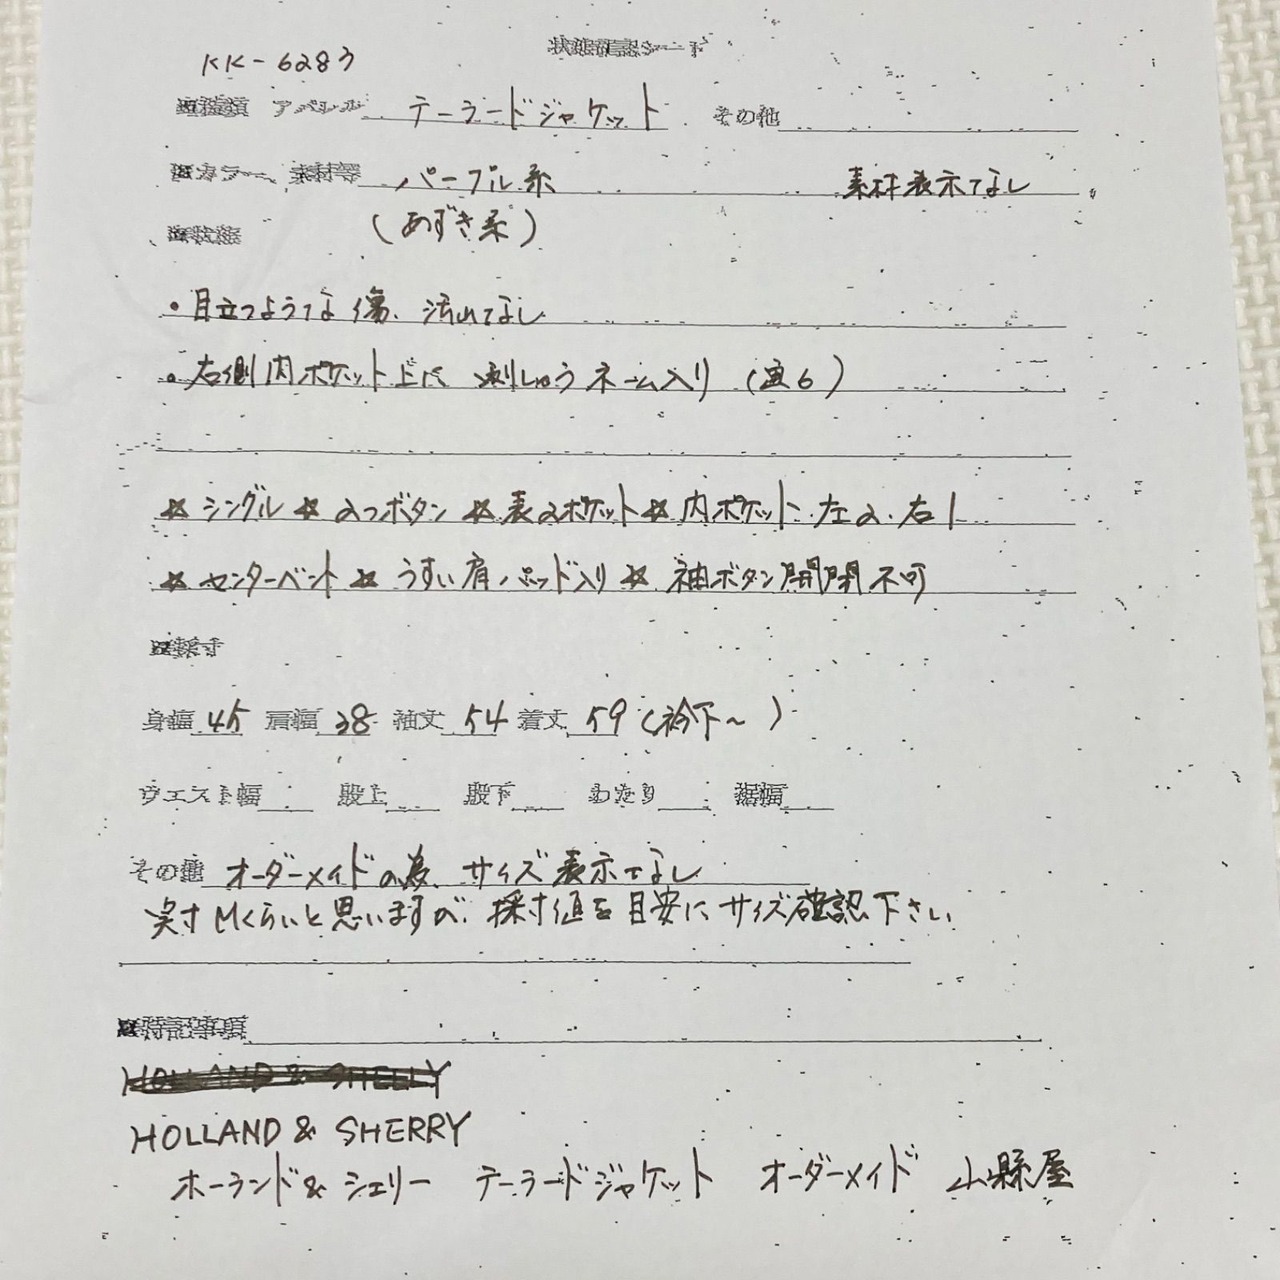 状態確認シート
KK-6283
■種類 アパレル テーラードジャケット その他
■カラー、素材等 パープル系 素材表示なし
(あずき系)
■状態
・目立つような傷、汚れなし
・右側内ポケット上に刺しゅうネーム入り (画6)
☆シングル ☆2つボタン ☆表2ポケット ☆内ポケット 左2、右1
☆センターベント ☆うすい肩パッド入り ☆袖ボタン開閉不可
■採寸
身幅 45 肩幅 38 袖丈 54 着丈 59 (衿下〜)
ウエスト幅 股上 股下 わたり 裾幅
その他 オーダーメイドの為、サイズ表示なし
実寸Mくらいと思いますが、採寸値を目安にサイズ確認下さい
■特記事項
HOLLAND & SHELLY
HOLLAND & SHERRY
ホーランド&シェリー テーラードジャケット オーダーメイド 山縣屋